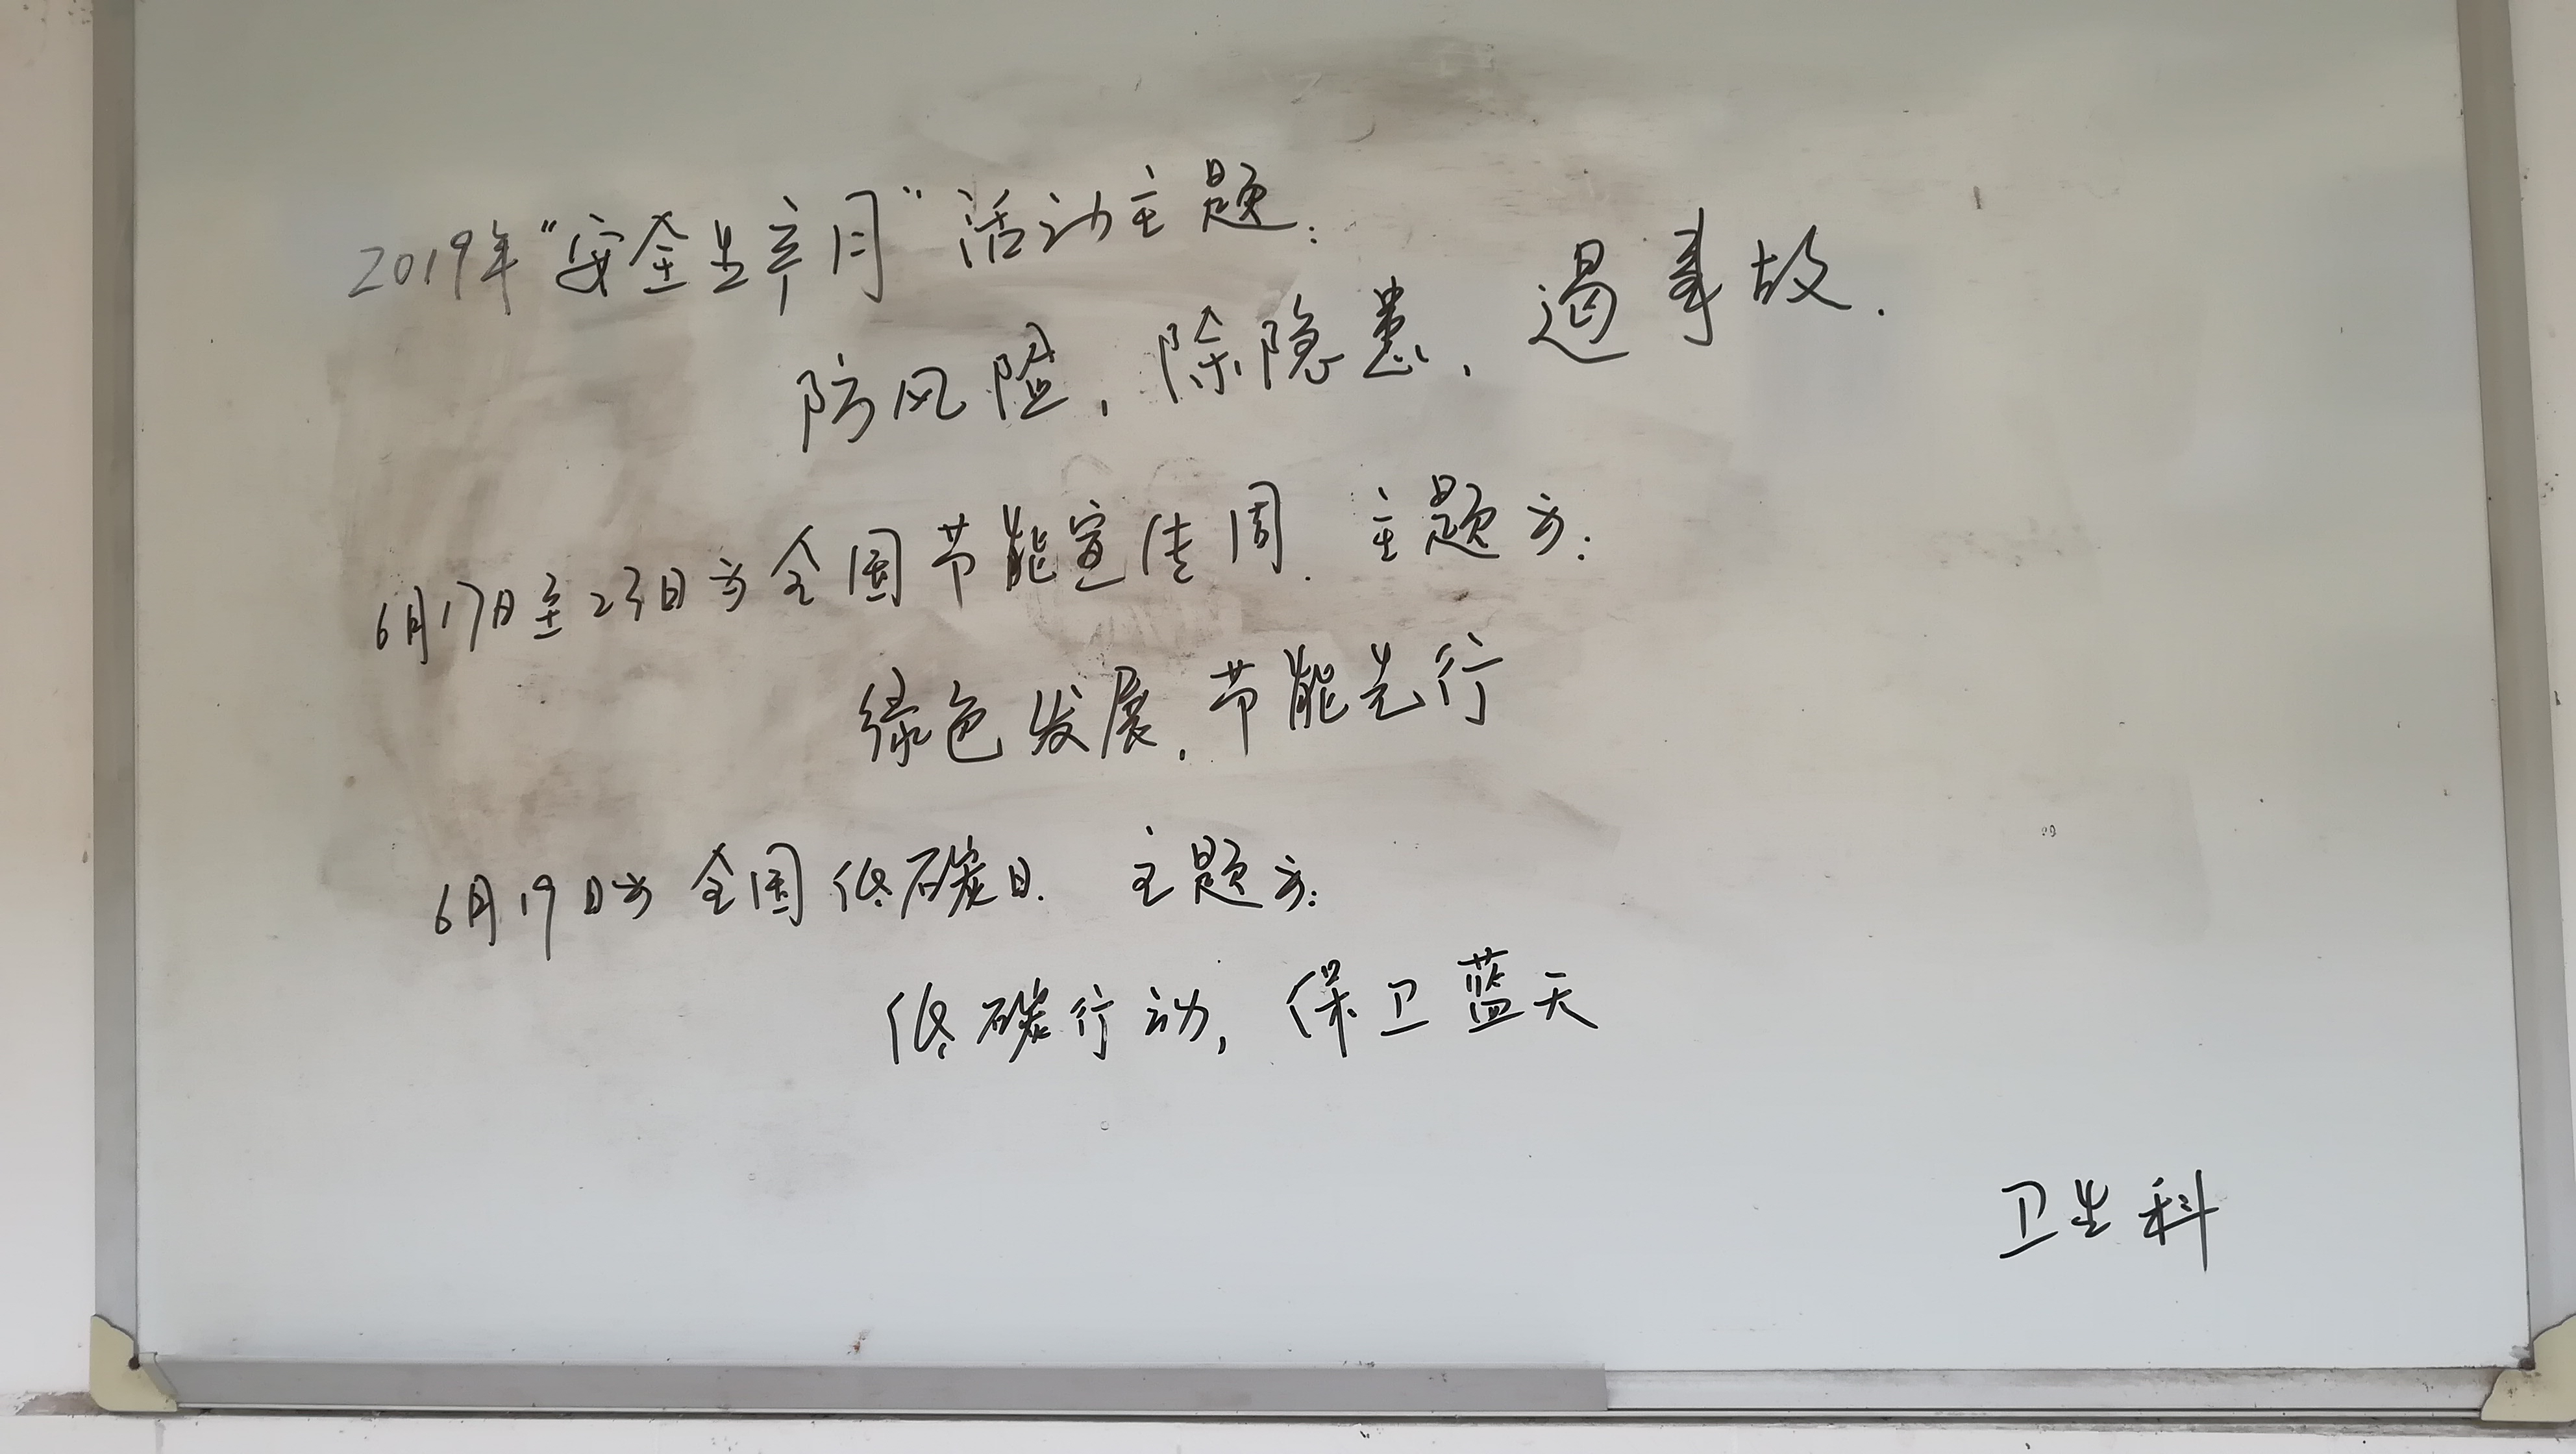 2019年“安全生产月”活动主题：
防风险，除隐患，遏事故.
6月17日至23日为全国节能宣传周.主题为：
绿色发展，节能先行
6月19日为全国低碳日.主题为：
低碳行动，保卫蓝天
卫生科